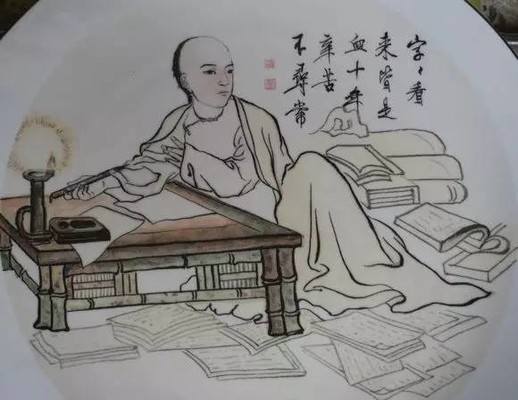 字〻看
来皆是
血十年
辛苦
不尋常